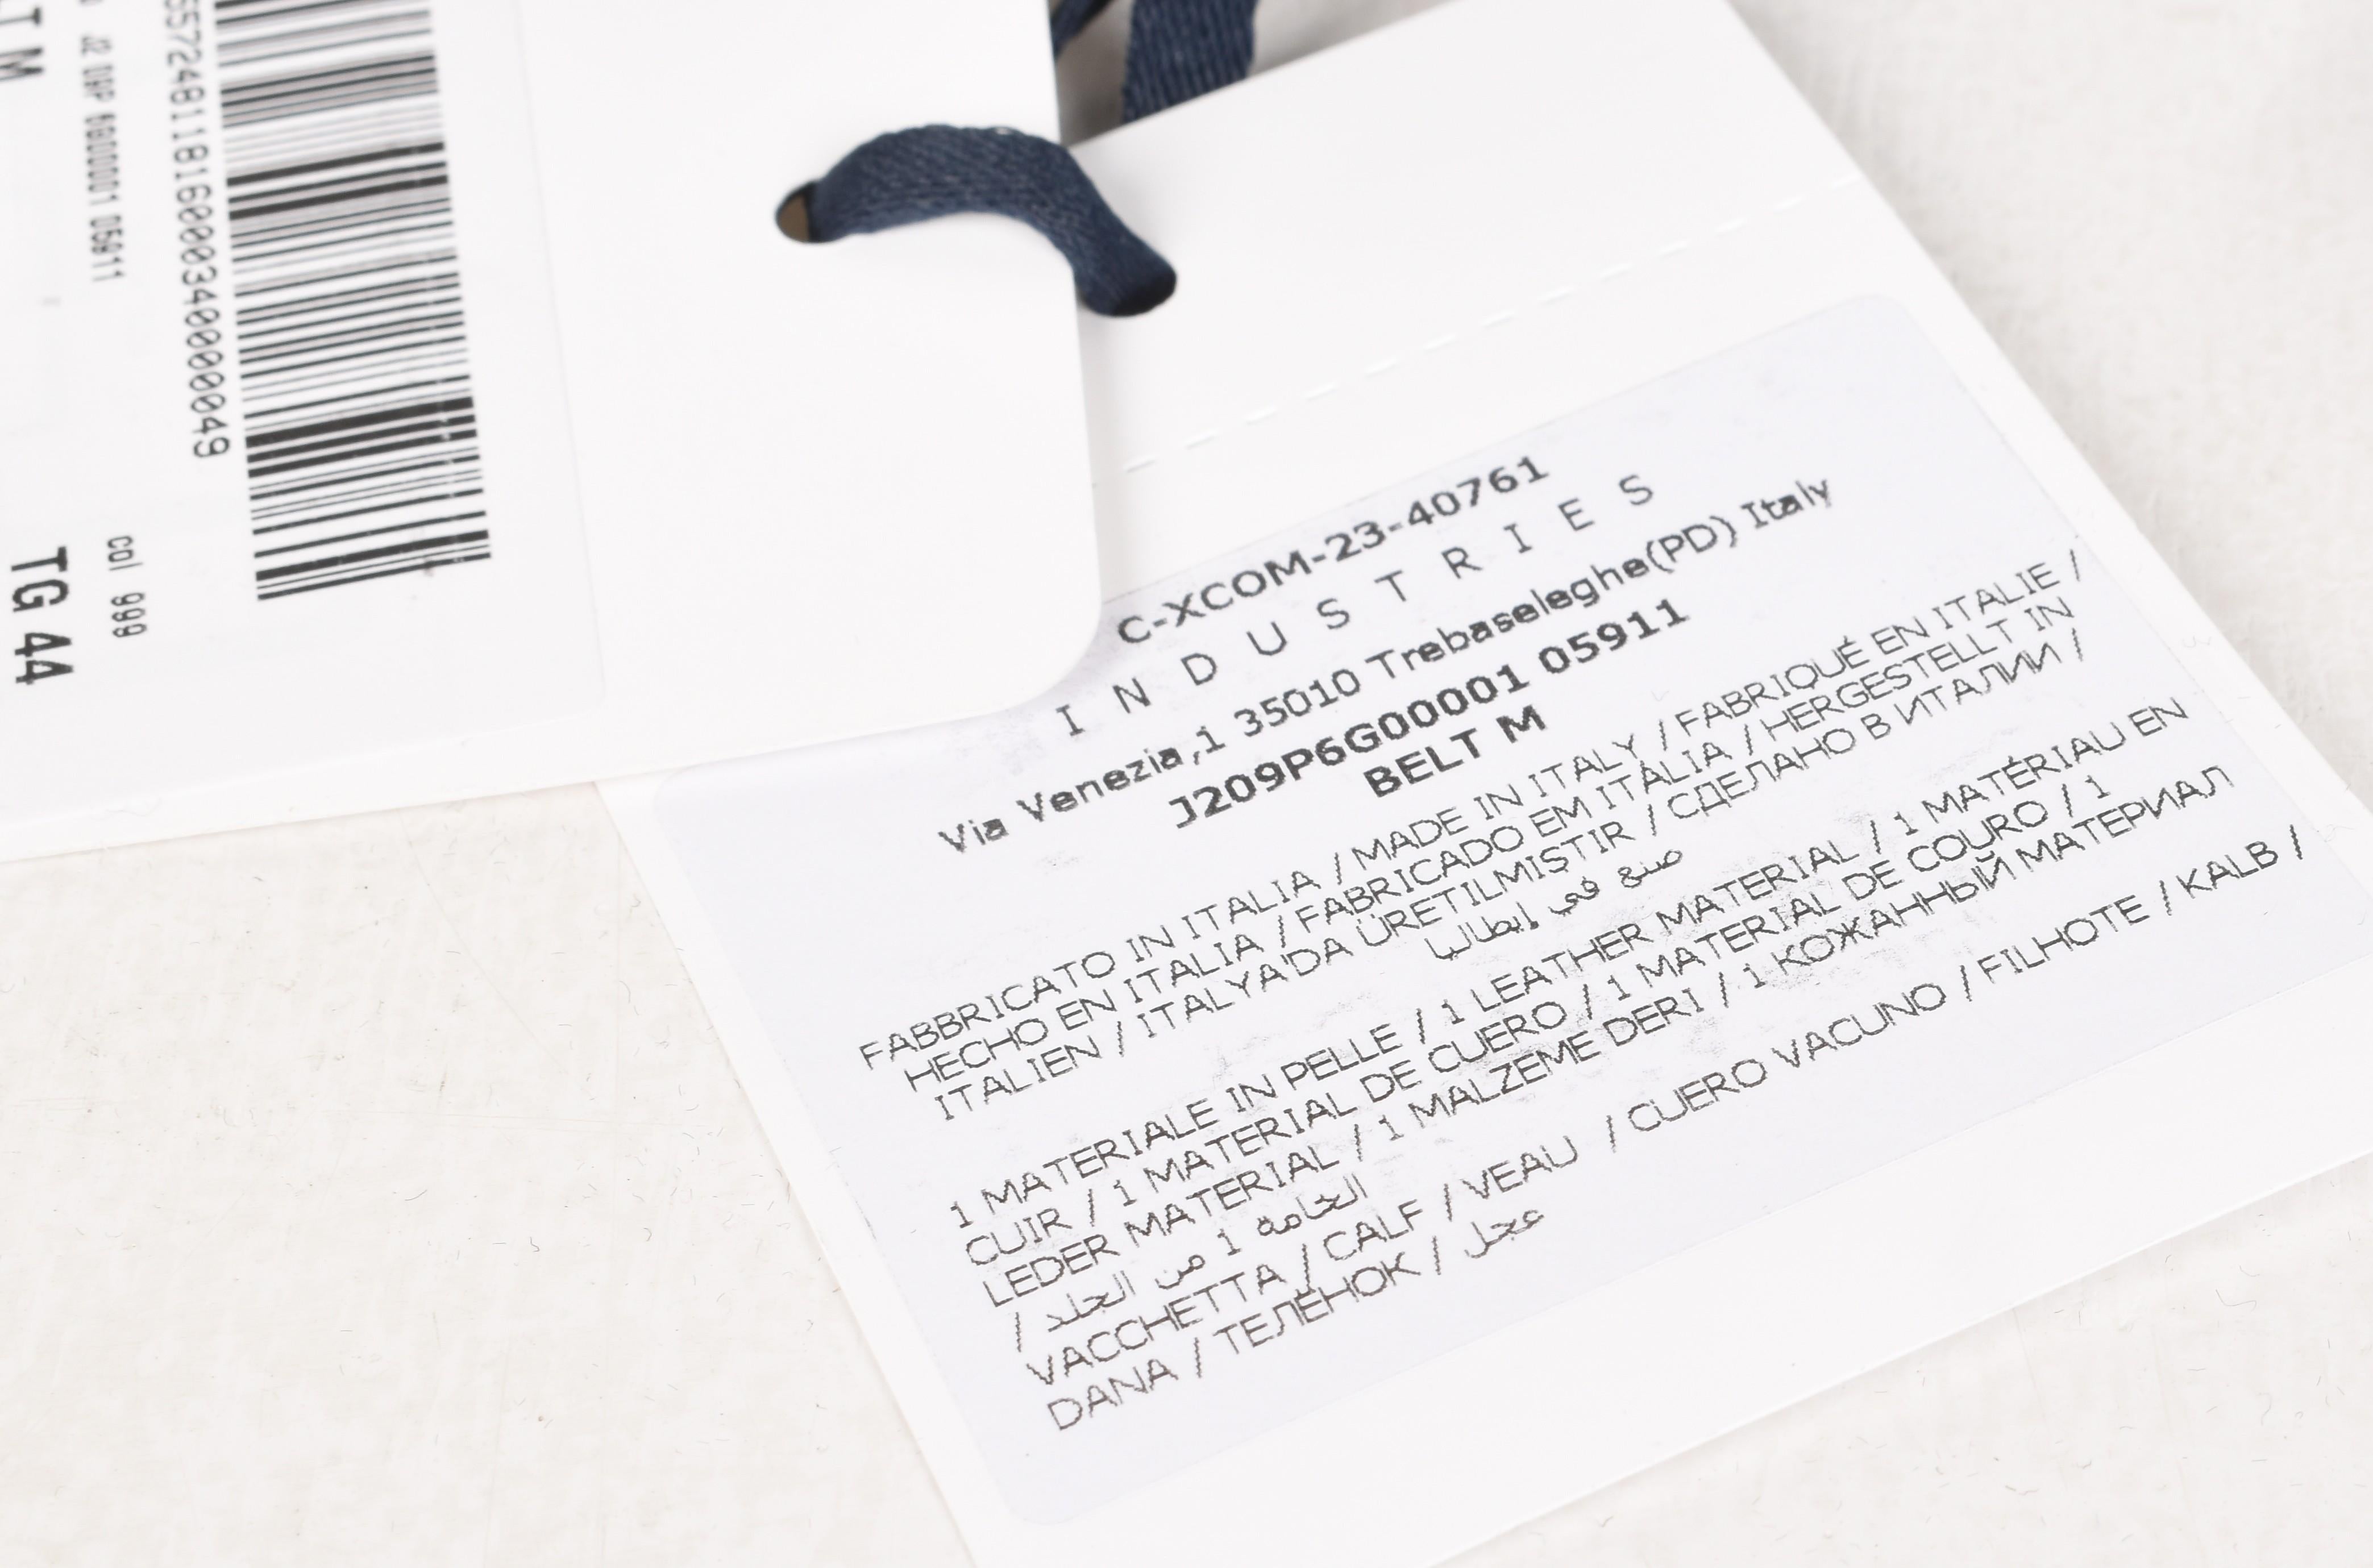 T M
J2 09P 6G00001 05911
5572481181600034000000049
col 999
TG 44
C-XCOM-23-40761
INDUSTRIES
Via Venezia,1 35010 Trebaseleghe(PD) Italy
J209P6G00001 05911
BELT M
FABBRICATO IN ITALIA / MADE IN ITALY / FABRIQUÉ EN ITALIE /
HECHO EN ITALIA / FABRICADO EM ITÁLIA / HERGESTELLT IN
ITALIEN / ITALYA'DA ÜRETILMIŞTIR / СДЕЛАНО В ИТАЛИИ /
صنع في إيطاليا
1 MATERIALE IN PELLE / 1 LEATHER MATERIAL / 1 MATÉRIAU EN
CUIR / 1 MATERIAL DE CUERO / 1 MATERIAL DE COURO / 1
LEDER MATERIAL / 1 MALZEME DERI / 1 КОЖАННЫЙ МАТЕРИАЛ
/ الخامة 1 من الجلد
VACCHETTA / CALF / VEAU / CUERO VACUNO / FILHOTE / KALB /
DANA / ТЕЛЁНОК / عجل